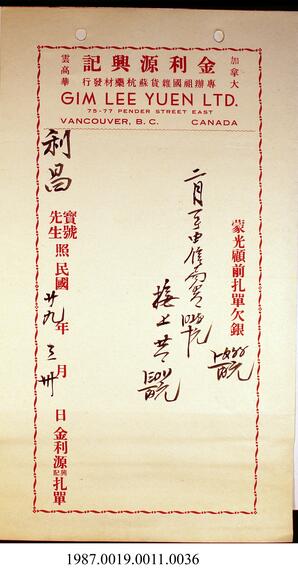 金利源興記
加拿大
雲高華
專辦祖國雜貨蘇杭藥材發行
GIM LEE YUEN LTD.
75-77 PENDER STREET EAST
VANCOUVER, B. C. CANADA
蒙光顧前扎單欠銀
二月
接上共
利昌
寶號
先生
照民國廿九年三月卅日金利源興記扎單
1987.0019.0011.0036